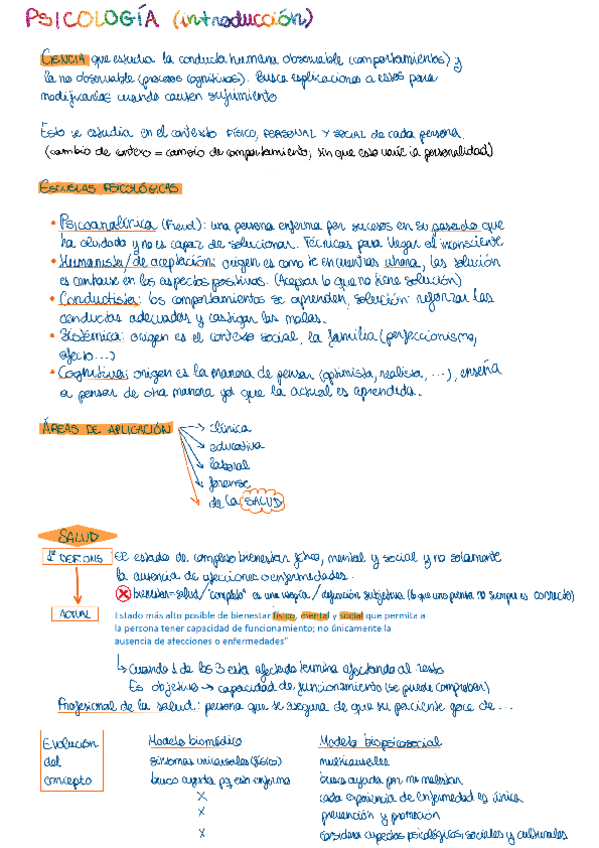 PSICOLOGÍA (introducción)
CIENCIA que estudia la conducta humana observable (comportamientos) y
la no observable (procesos cognitivos). Busca explicaciones a estos para
modificarlas cuando causen sufrimiento
Esto se estudia en el contexto FÍSICO, PERSONAL Y SOCIAL de cada persona.
(cambio de contexo = cambio de comportamiento, sin que esto varíe la personalidad)
ESCUELAS PSICOLÓGICAS
• Psicoanalítica (Freud): una persona enferma por sucesos en su pasado que
ha olvidado y no es capaz de solucionar. Técnicas para llegar al inconsciente
• Humanista/de aceptación: origen es como te encuentras ahora, las solución
es centrarse en los aspectos positivos. (Aceptar lo que no tiene solución)
• Conductista: los comportamientos se aprenden, solución: reforzar las
conductas adecuadas y castigar las malas.
• Sistémica: origen es el contexto social, la familia (perfeccionismo,
afecto...)
• Cognitiva: origen es la manera de pensar (optimista, realista, ...), enseña
a pensar de otra manera ya que la actual es aprendida.
ÁREAS DE APLICACIÓN
clínica
educativa
laboral
forense
de la SALUD
SALUD
1ª DEF OMS
El estado de completo bienestar físico, mental y social y no solamente
la ausencia de afecciones o enfermedades.
bienestar=salud/"completo" es una utopía/definición subjetiva (lo que uno piensa no siempre es correcto)
ACTUAL
Estado más alto posible de bienestar físico, mental y social que permita a
la persona tener capacidad de funcionamiento; no únicamente la
ausencia de afecciones o enfermedades"
Cuando 1 de los 3 esta afectado termina afectando al resto
Es objetivo → capacidad de funcionamiento (se puede comprobar)
Profesional de la salud: persona que se asegura de que su paciente goce de...
Evolución del concepto
Modelo biomédico
Modelo biopsicosocial
síntomas universales (físicos)
multicausales
busco ayuda pq estoy enfermo
busco ayuda por mi malestar
X
cada experiencia de enfermedad es única
X
prevención y promoción
X
considera aspectos psicológicos, sociales y culturales